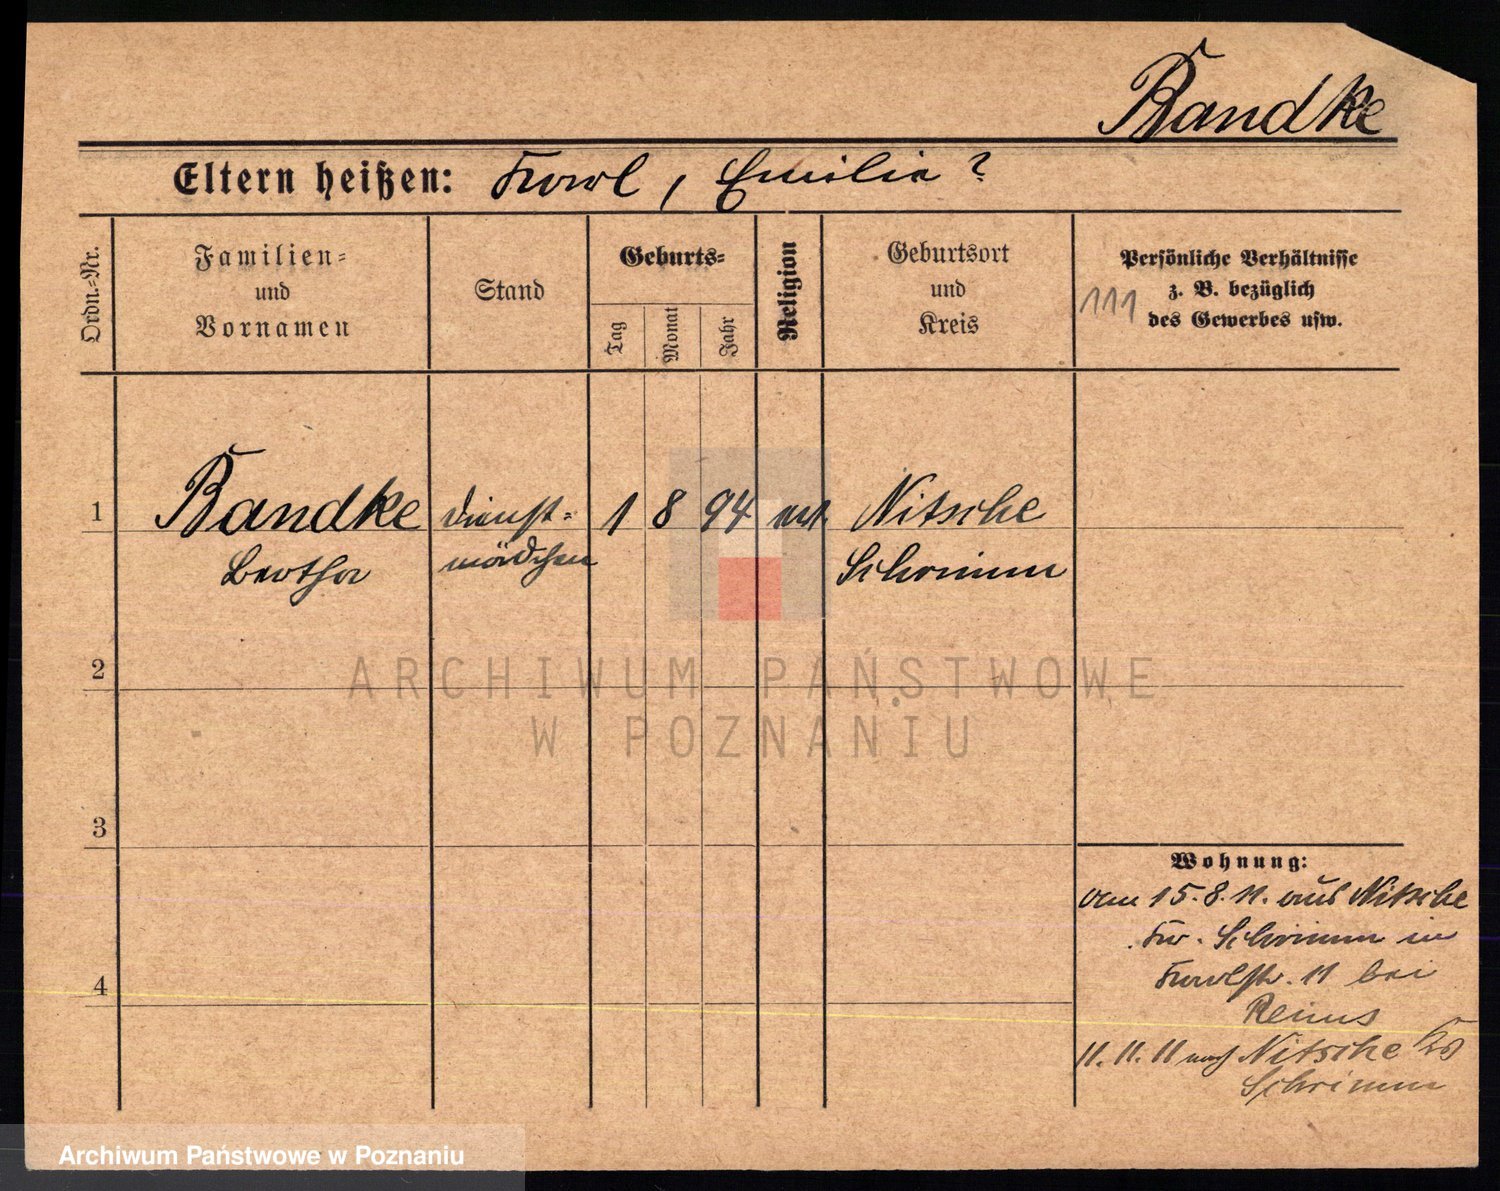 Bandke
Eltern heißen: Karl, Emilie?
Ordn.=Nr.
Familien=
und
Vornamen
Stand
Geburts=
Tag
Monat
Jahr
Religion
Geburtsort
und
Kreis
Persönliche Verhältnisse
z. B. bezüglich
des Gewerbes usw.
111
1 Bandke Dienst= 1 8 94 Nitsche
Bertha mädchen Schrimm
2
3
4
Wohnung:
am 15.8.11. aus Nitsche
Kr. Schrimm in
Karlstr. 11 bei
11.11.11 nach Nitsche
Schrimm
ARCHIWUM PAŃSTWOWE
W POZNANIU
Archiwum Państwowe w Poznaniu